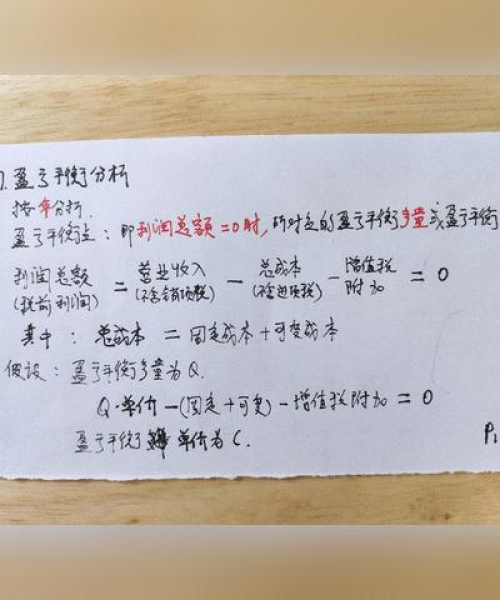 7. 盈亏平衡分析
按年分析.
盈亏平衡点：即利润总额=0时，所对应的盈亏平衡产量或盈亏平衡
利润总额(税前利润) = 营业收入(不含销项税) - 总成本(不含进项税) - 增值税附加 = 0
其中：总成本 = 固定成本+可变成本
假设：盈亏平衡产量为Q.
Q·单价-(固定+可变)-增值税附加=0
盈亏平衡 单价为C.
P1